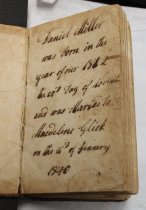 Daniel Miller
was born in the
year of our
Day of
and was Married to
Magdelene Glick
on the of January
1840